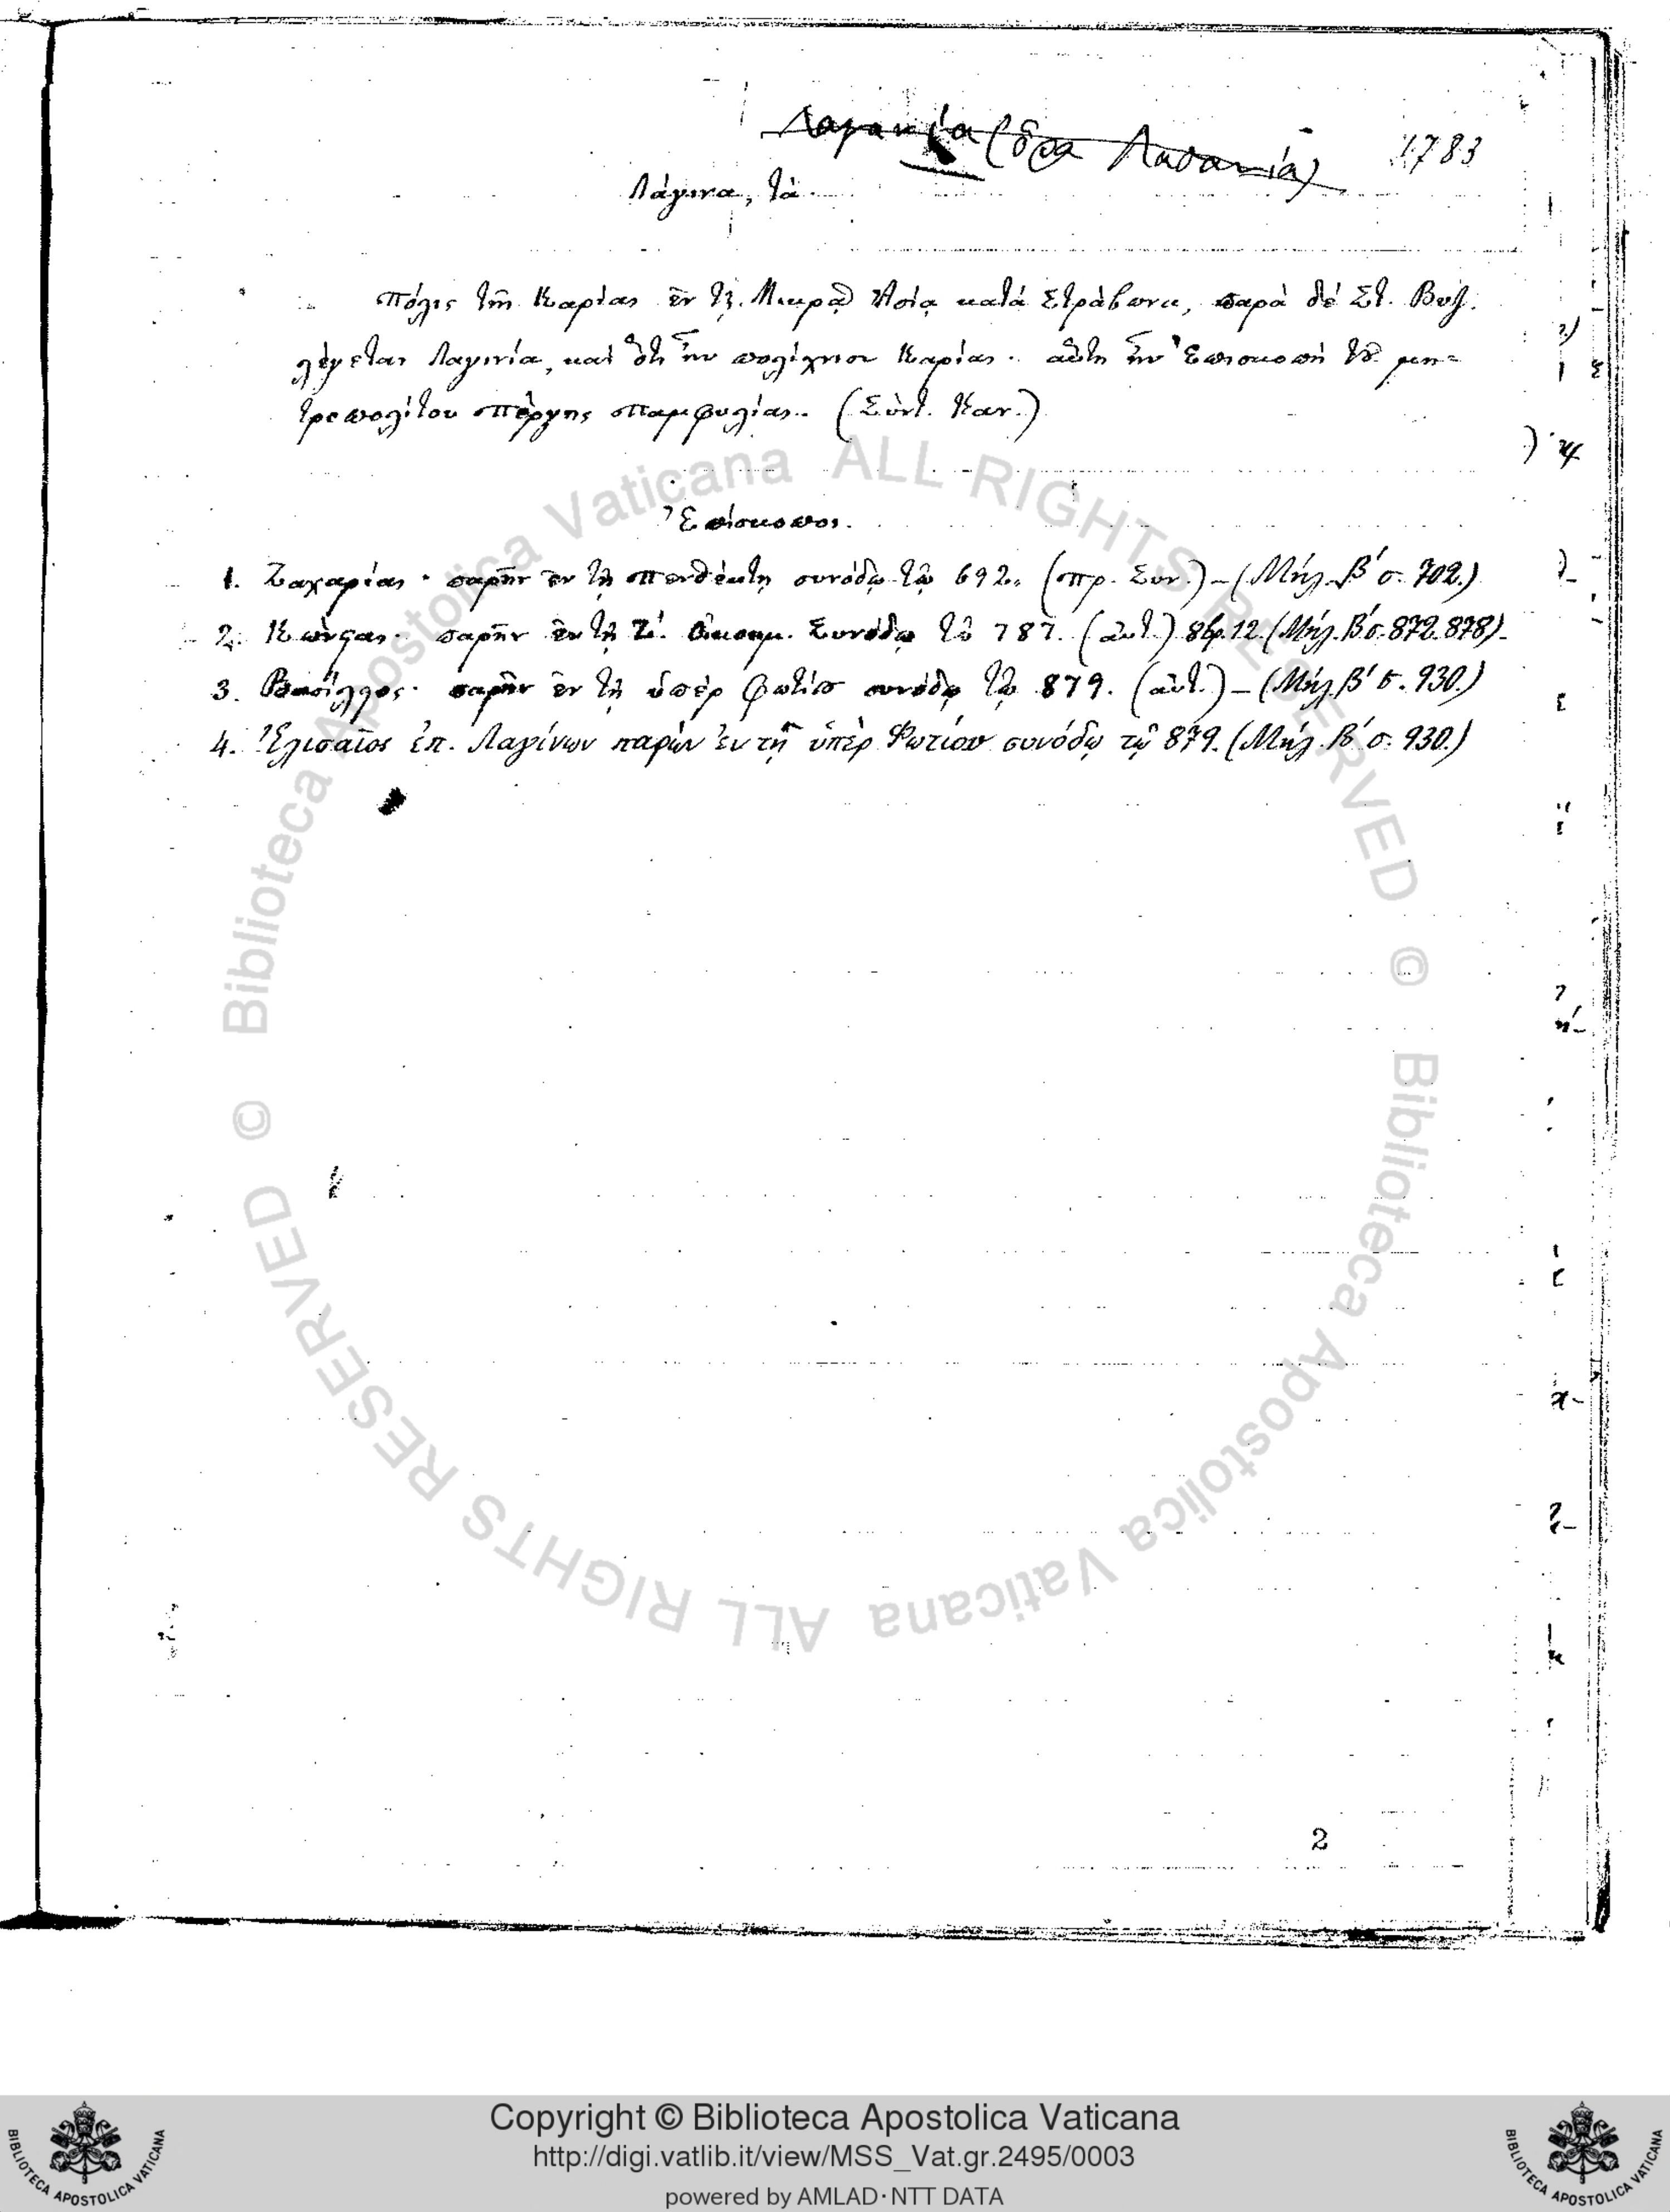 Λαγανία (ὅρα Λαδανία)
1783
Λάγινα, τὰ.
Πόλις τῆς Καρίας ἐν τῇ Μικρᾷ Ἀσίᾳ κατὰ Στράβωνα, παρὰ δὲ Στ. Βυζ.
λέγεται Λαγινία, καὶ ὅτι ἦν πολίχνιον Καρίας. αὕτη ἦν Ἐπισκοπὴ τοῦ μη=
τροπολίτου Πέργης Παμφυλίας. (Σύντ. Καν.)
Ἐπίσκοποι.
1. Ζαχαρίας · παρῆν ἐν τῇ Πενθέκτῃ συνόδῳ τῷ 692. (πρ. Συν.) – (Μήλ. Β΄ σ. 702.)
2. παρῆν ἐν τῇ Ζ΄. Οἰκουμ. Συνόδῳ τῷ 787. (αὐτ.) 8βρ. 12. (Μήλ. Β΄ σ. 872. 878).
3. Βασίλειος · παρῆν ἐν τῇ ὑπὲρ Φωτίου συνόδῳ τῷ 879. (αὐτ.) – (Μήλ. Β΄ σ. 930.)
4. Ἐλισαῖος ἐπ. Λαγίνων παρὼν ἐν τῇ ὑπὲρ Φωτίου συνόδῳ τῷ 879. (Μήλ. Β΄ σ. 930.)
2
© Biblioteca Apostolica Vaticana ALL RIGHTS RESERVED
© Biblioteca Apostolica Vaticana ALL RIGHTS RESERVED
Copyright © Biblioteca Apostolica Vaticana
http://digi.vatlib.it/view/MSS_Vat.gr.2495/0003
powered by AMLAD·NTT DATA
BIBLIOTECA APOSTOLICA VATICANA
BIBLIOTECA APOSTOLICA VATICANA